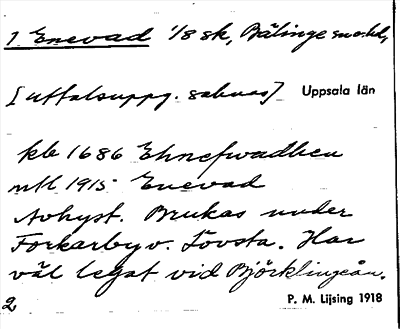 1 Enevad 1/8 sk, Bälinge sn o. hd,
[uttalsuppg. saknas] Uppsala län
kb 1686 Ehnefwadhen
mtl 1915 Enevad
Avhyst. Brukas under
Forkarby o. Lövsta. Har
väl legat vid Björklingeån.
2 P. M. Lijsing 1918